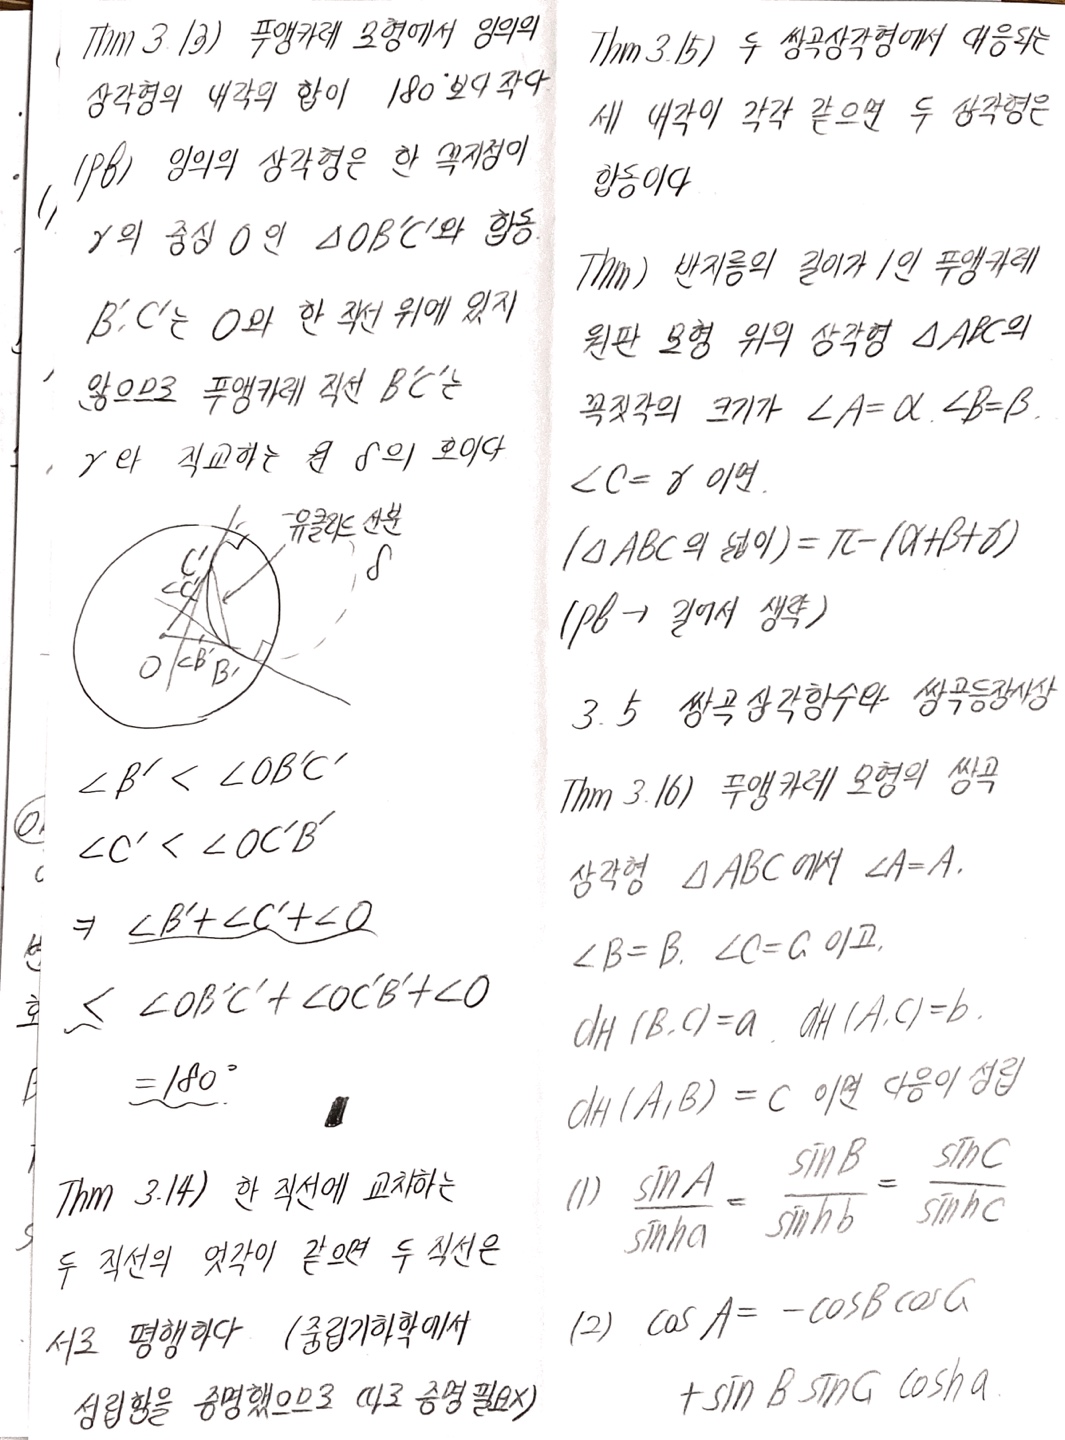 Thm 3.13) 푸앵카레 모형에서 임의의
삼각형의 내각의 합이 180°보다 작다
(pf) 임의의 삼각형은 한 꼭지점이
γ의 중심 O인 △OB'C'와 합동.
B', C'는 O와 한 직선 위에 있지
않으므로 푸앵카레 직선 B'C'는
γ와 직교하는 원 δ의 호이다
유클리드 선분
δ
C'
∠C'
O
∠B'
B'
∠B' < ∠OB'C'
∠C' < ∠OC'B'
⇒ ∠B'+∠C'+∠O
< ∠OB'C'+∠OC'B'+∠O
=180°
Thm 3.14) 한 직선에 교차하는
두 직선의 엇각이 같으면 두 직선은
서로 평행하다 (중립기하학에서
성립함을 증명했으므로 따로 증명 필요X)
Thm 3.15) 두 쌍곡삼각형에서 대응되는
세 내각이 각각 같으면 두 삼각형은
합동이다
Thm) 반지름의 길이가 1인 푸앵카레
원판 모형 위의 삼각형 △ABC의
꼭짓각의 크기가 ∠A=α. ∠B=β.
∠C=γ 이면.
(△ABC의 넓이)=π-(α+β+γ)
(pf → 길어서 생략)
3.5 쌍곡삼각함수와 쌍곡등장사상
Thm 3.16) 푸앵카레 모형의 쌍곡
삼각형 △ABC에서 ∠A=A.
∠B=B. ∠C=C 이고.
dH(B.C)=a. dH(A.C)=b.
dH(A,B)=c 이면 다음이 성립
(1) sinA/sinha = sinB/sinhb = sinC/sinhc
(2) cosA= -cosBcosC
+sinBsinC cosha.